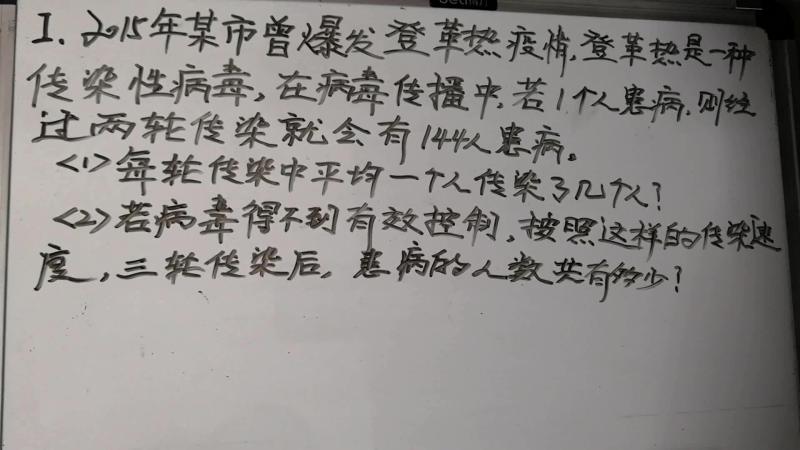 1. 2015年某市曾爆发登革热疫情,登革热是一种
传染性病毒,在病毒传播中,若1个人患病,则经
过两轮传染就会有144人患病。
<1>每轮传染中平均一个人传染了几个人?
<2>若病毒得不到有效控制,按照这样的传染速
度,三轮传染后,患病的人数共有多少?